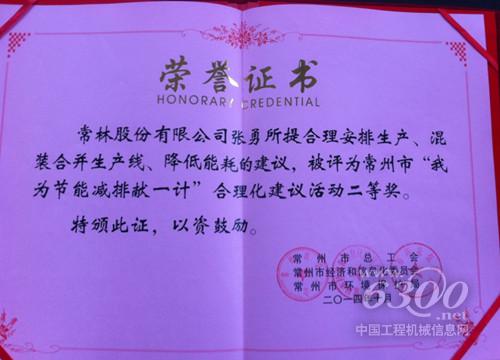 荣誉证书
HONORARY CREDENTIAL
常林股份有限公司张勇所提合理安排生产、混
装合并生产线、降低能耗的建议，被评为常州市“我
为节能减排献一计”合理化建议活动二等奖。
特颁此证，以资鼓励。
常州市总工会
常州市经济和信息化委员会
常州市环境保护局
二〇一四年十月
6300
.net
中国工程机械信息网